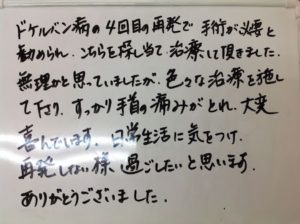 ドケルバン病の4回目の再発で手術が必要と
勧められ、こちらを探し当て治療して頂きました。
無理かと思っていましたが、色々な治療を施し
て下さり、すっかり手首の痛みがとれ、大変
喜んでいます。日常生活に気をつけ、
再発しない様、過ごしたいと思います。
ありがとうございました。